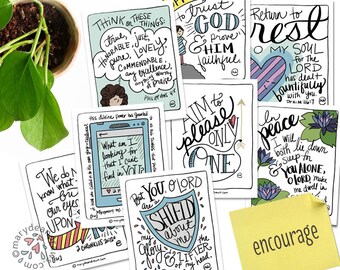 THINK on THESE THINGS:
true,
just,
honorable,
pure,
LOVELY,
COMMENDABLE,
any excellence,
anything Worthy
of Praise
PHILIPPIANS 4:8
to trust
GOD
& prove
HIM
faithful.
Return to
rest
O MY SOUL
FOR THE
LORD
has dealt
bountifully
with you.
His divine power has granted
What am I
looking for
that I can't
find in YOU?
AIM to
please
ONLY
ONE
in peace
I will
both lie down
& sleep
for YOU ALONE,
O LORD, make
me dwell in
We do NOT
know what
BUT
our eyes
UPON
2 CHRONICLES 20:12
But
YOU O LORD
are a
SHIELD
about me
my Glory
& the
LIFTER
OF MY
head.
encourage